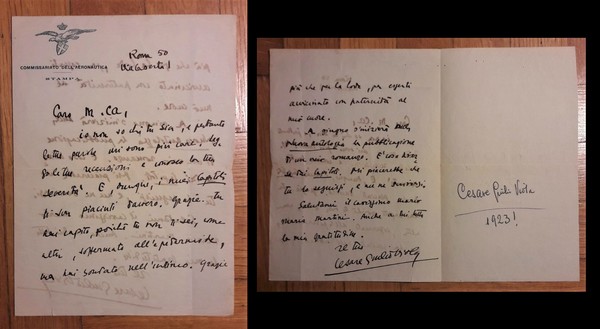 COMMISSARIATO DELL'AERONAUTICA
STAMPA
Roma 50
Caro M. Ca,
io non so chi tu sia, e pertanto
le tue parole mi sono più care. Leg-
go le tue recensioni e conosco la tua
severità. E dunque, i miei Capitoli
ti son piaciuti davvero. Grazie. Tu
hai capito, poiché tu non ti sei, come
altri, soffermato all'epidermide,
ma hai sondato nell'intimo. Grazie
più che per la lode, per esserti
avvicinato con paternità al
mio cuore.
A giugno s'inizierà
la pubblicazione
di un mio romanzo. E così
se dai Capitoli, mi piacerebbe che
tu lo seguissi, e me ne scrivessi.
Salutami il carissimo mario
maria martini. Anche a lui tutta
la mia gratitudine.
il tuo
Cesare Giulio Viola
Cesare Giulio Viola
1923!